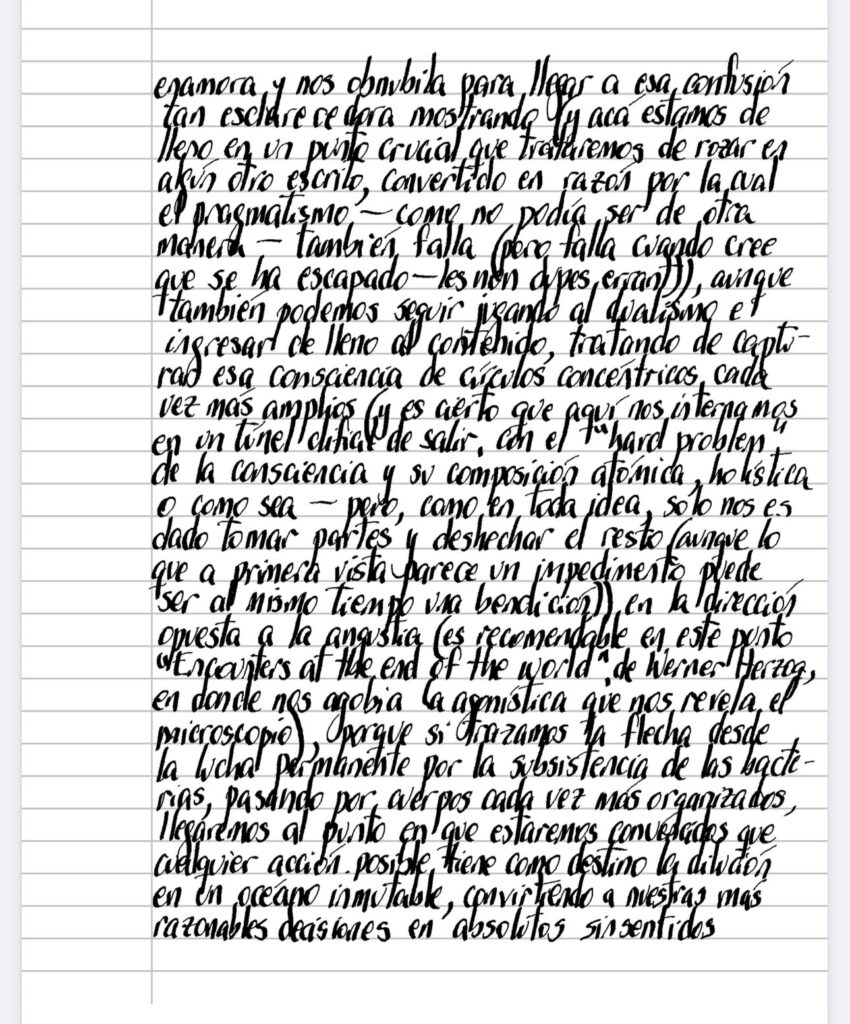 enamora y nos obnubila para llegar a esa confusión
tan esclarecedora mostrando (y acá estamos de
lleno en un punto crucial que trataremos de rozar en
algún otro escrito, convertido en razón por la cual
el pragmatismo — como no podía ser de otra
manera — también falla (pero falla cuando cree
que se ha escapado — les non dupes errant)), aunque
también podemos seguir jugando al dualismo e
ingresar de lleno al contenido, tratando de captu-
rar esa consciencia de círculos concéntricos cada
vez más amplios (y es cierto que aquí nos internamos
en un túnel difícil de salir, con el "hard problem"
de la consciencia y su composición atómica, holística
o como sea — pero, como en toda idea, sólo nos es
dado tomar partes y deshechar el resto (aunque lo
que a primera vista parece un impedimento puede
ser al mismo tiempo una bendición)) en la dirección
opuesta a la angustia (es recomendable en este punto
"Encounters at the end of the world", de Werner Herzog,
en donde nos agobia la agonística que nos revela el
microscopio), porque si trazamos la flecha desde
la lucha permanente por la subsistencia de las bacte-
rias, pasando por cuerpos cada vez más organizados,
llegaremos al punto en que estaremos convencidos que
cualquier acción posible tiene como destino la dilución
en un océano inmutable, convirtiendo a nuestras más
razonables decisiones en absolutos sinsentidos